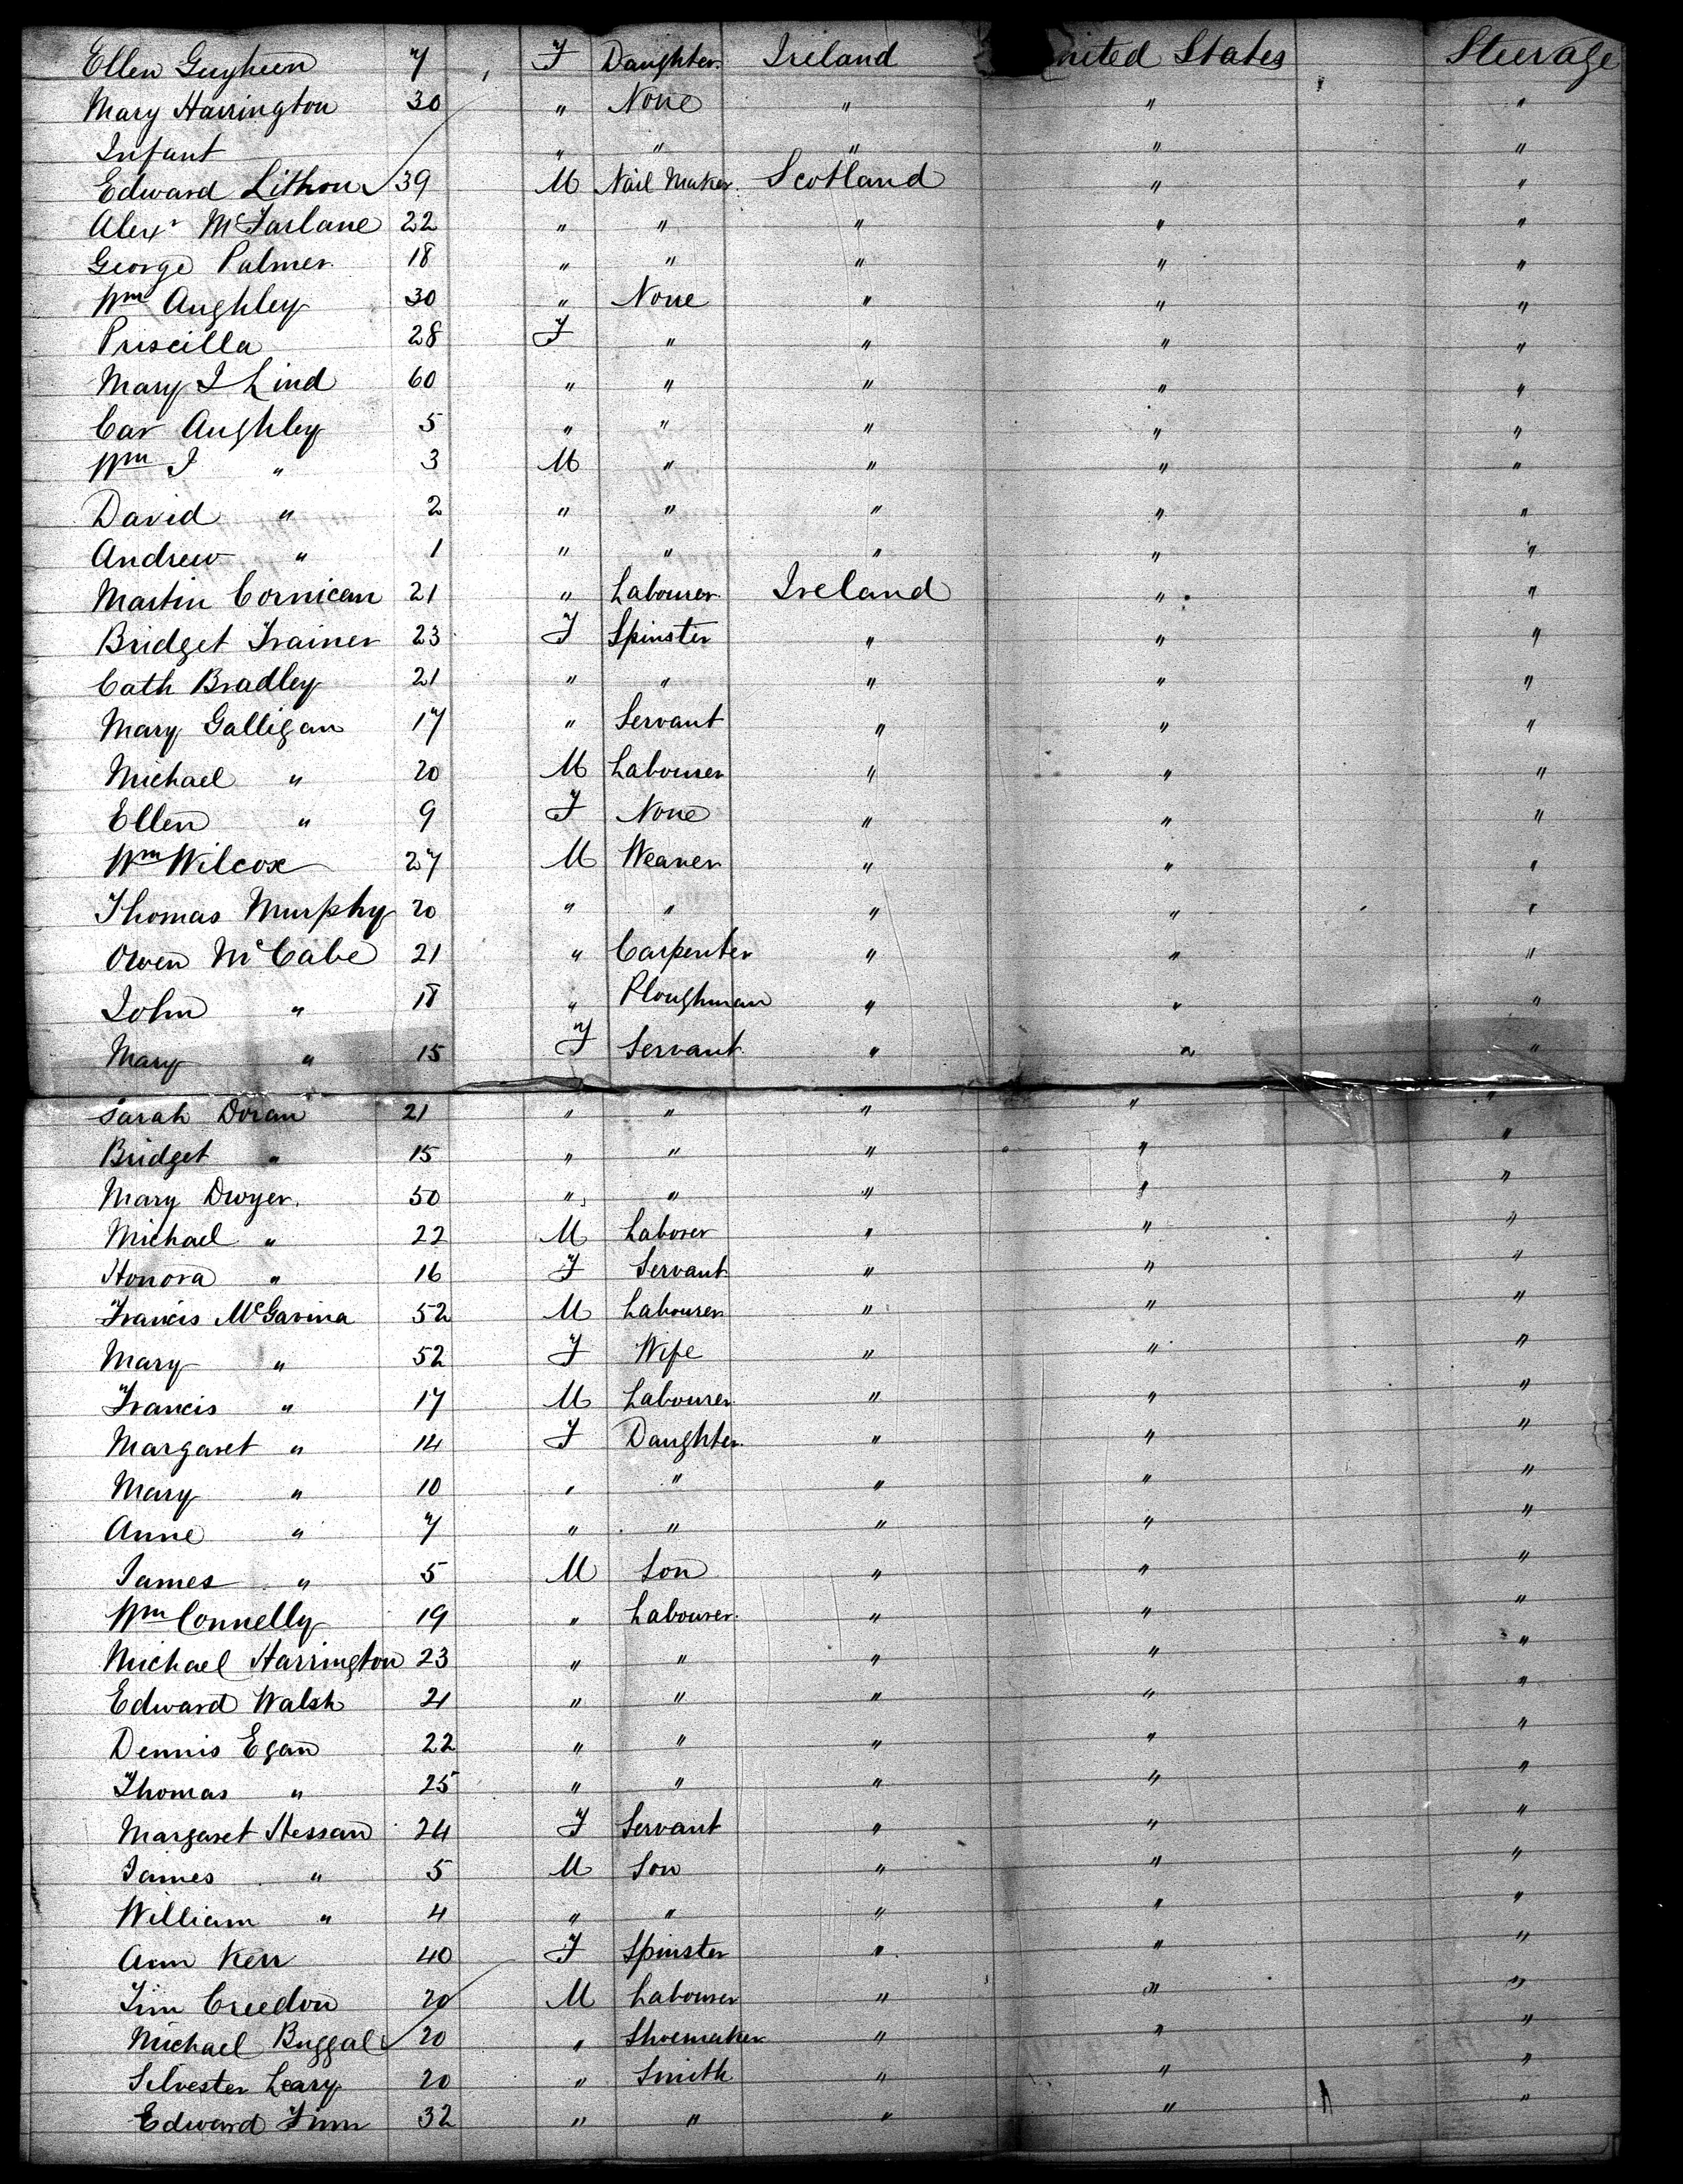 Ellen Guyheen 7 F Daughter Ireland nited States Steerage
Mary Harrington 30 " None " " "
Infant " " " " "
Edward Lithou 39 M Nail Maker Scotland " "
Alexr McFarlane 22 " " " " "
George Palmer 18 " " " " "
Wm Aughley 30 " None " " "
Priscilla 28 F " " " "
Mary J Lind 60 " " " " "
Car Aughley 5 " " " " "
Wm J " 3 M " " " "
David " 2 " " " " "
Andrew " 1 " " " " "
Martin Cornican 21 " Labourer Ireland " "
Bridget Trainer 23 F Spinster " " "
Cath Bradley 21 " " " " "
Mary Galligan 17 " Servant " " "
Michael " 20 M Labourer " " "
Ellen " 9 F None " " "
Wm Wilcox 27 M Weaver " " "
Thomas Murphy 20 " " " " "
Owen McCabe 21 " Carpenter " " "
John " 18 " Ploughman " " "
Mary " 15 F Servant " " "
Sarah Doran 21 " " " " "
Bridget " 15 " " " " "
Mary Dwyer 50 " " " " "
Michael " 22 M Laborer " " "
Honora " 16 F Servant " " "
Francis McGavina 52 M Labourer " " "
Mary " 52 F Wife " " "
Francis " 17 M Labourer " " "
Margaret " 14 F Daughter " " "
Mary " 10 " " " " "
Anne " 7 " " " " "
James " 5 M Son " " "
Wm Connelly 19 " Labourer " " "
Michael Harrington 23 " " " " "
Edward Walsh 21 " " " " "
Dennis Egan 22 " " " " "
Thomas " 25 " " " " "
Margaret Hessan 24 F Servant " " "
James " 5 M Son " " "
William " 4 " " " " "
Ann Kerr 40 F Spinster " " "
Tim Creedon 20 M Labourer " " "
Michael Buggal 20 " Shoemaker " " "
Silvester Leary 20 " Smith " " "
Edward Finn 32 " " " " "